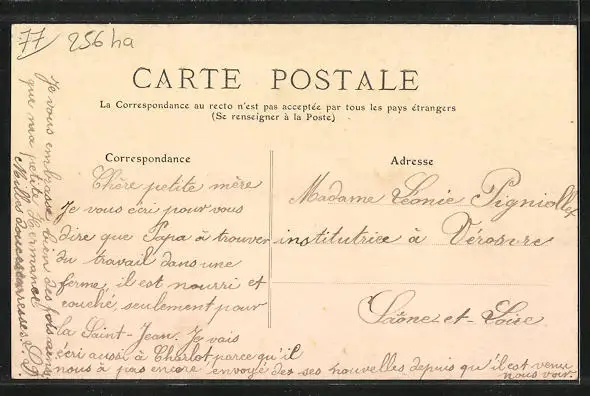 77 256 ha
CARTE POSTALE
La Correspondance au recto n'est pas acceptée par tous les pays étrangers
(Se renseigner à la Poste)
Correspondance
Chère petite mère
Je vous écri pour vous
dire que Papa à trouver
du travail dans une
ferme, il est nourri et
couché, seulement pour
la Saint-Jean. Je vais
écri aussi à Charlot parce qu'il
nous à pas encore envoyé des ses nouvelles depuis qu'il est venu
nous voir.
Je vous embrasse bien des fois ainsi
que ma petite Hermance
Milles caresses
Adresse
Madame Léonie Pignollet
institutrice à Vérosvre
Saône-et-Loire